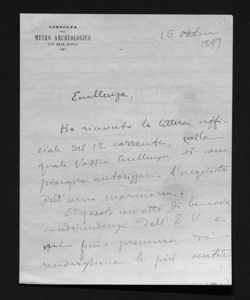 CONSULTA
DEL
MUSEO ARCHEOLOGICO
IN MILANO
16 ottobre
1897
Eccellenza,
Ho ricevuto la lettera uffi-
ciale del 12 corrente, colla
quale Vostra Eccellenza si com
piacque autorizzare l'acquisto
dell'arca marmorea.
È questo un atto di benevola
condiscendenza dell'E. V. e
mi faccio premura di
rendergliene le più sentite